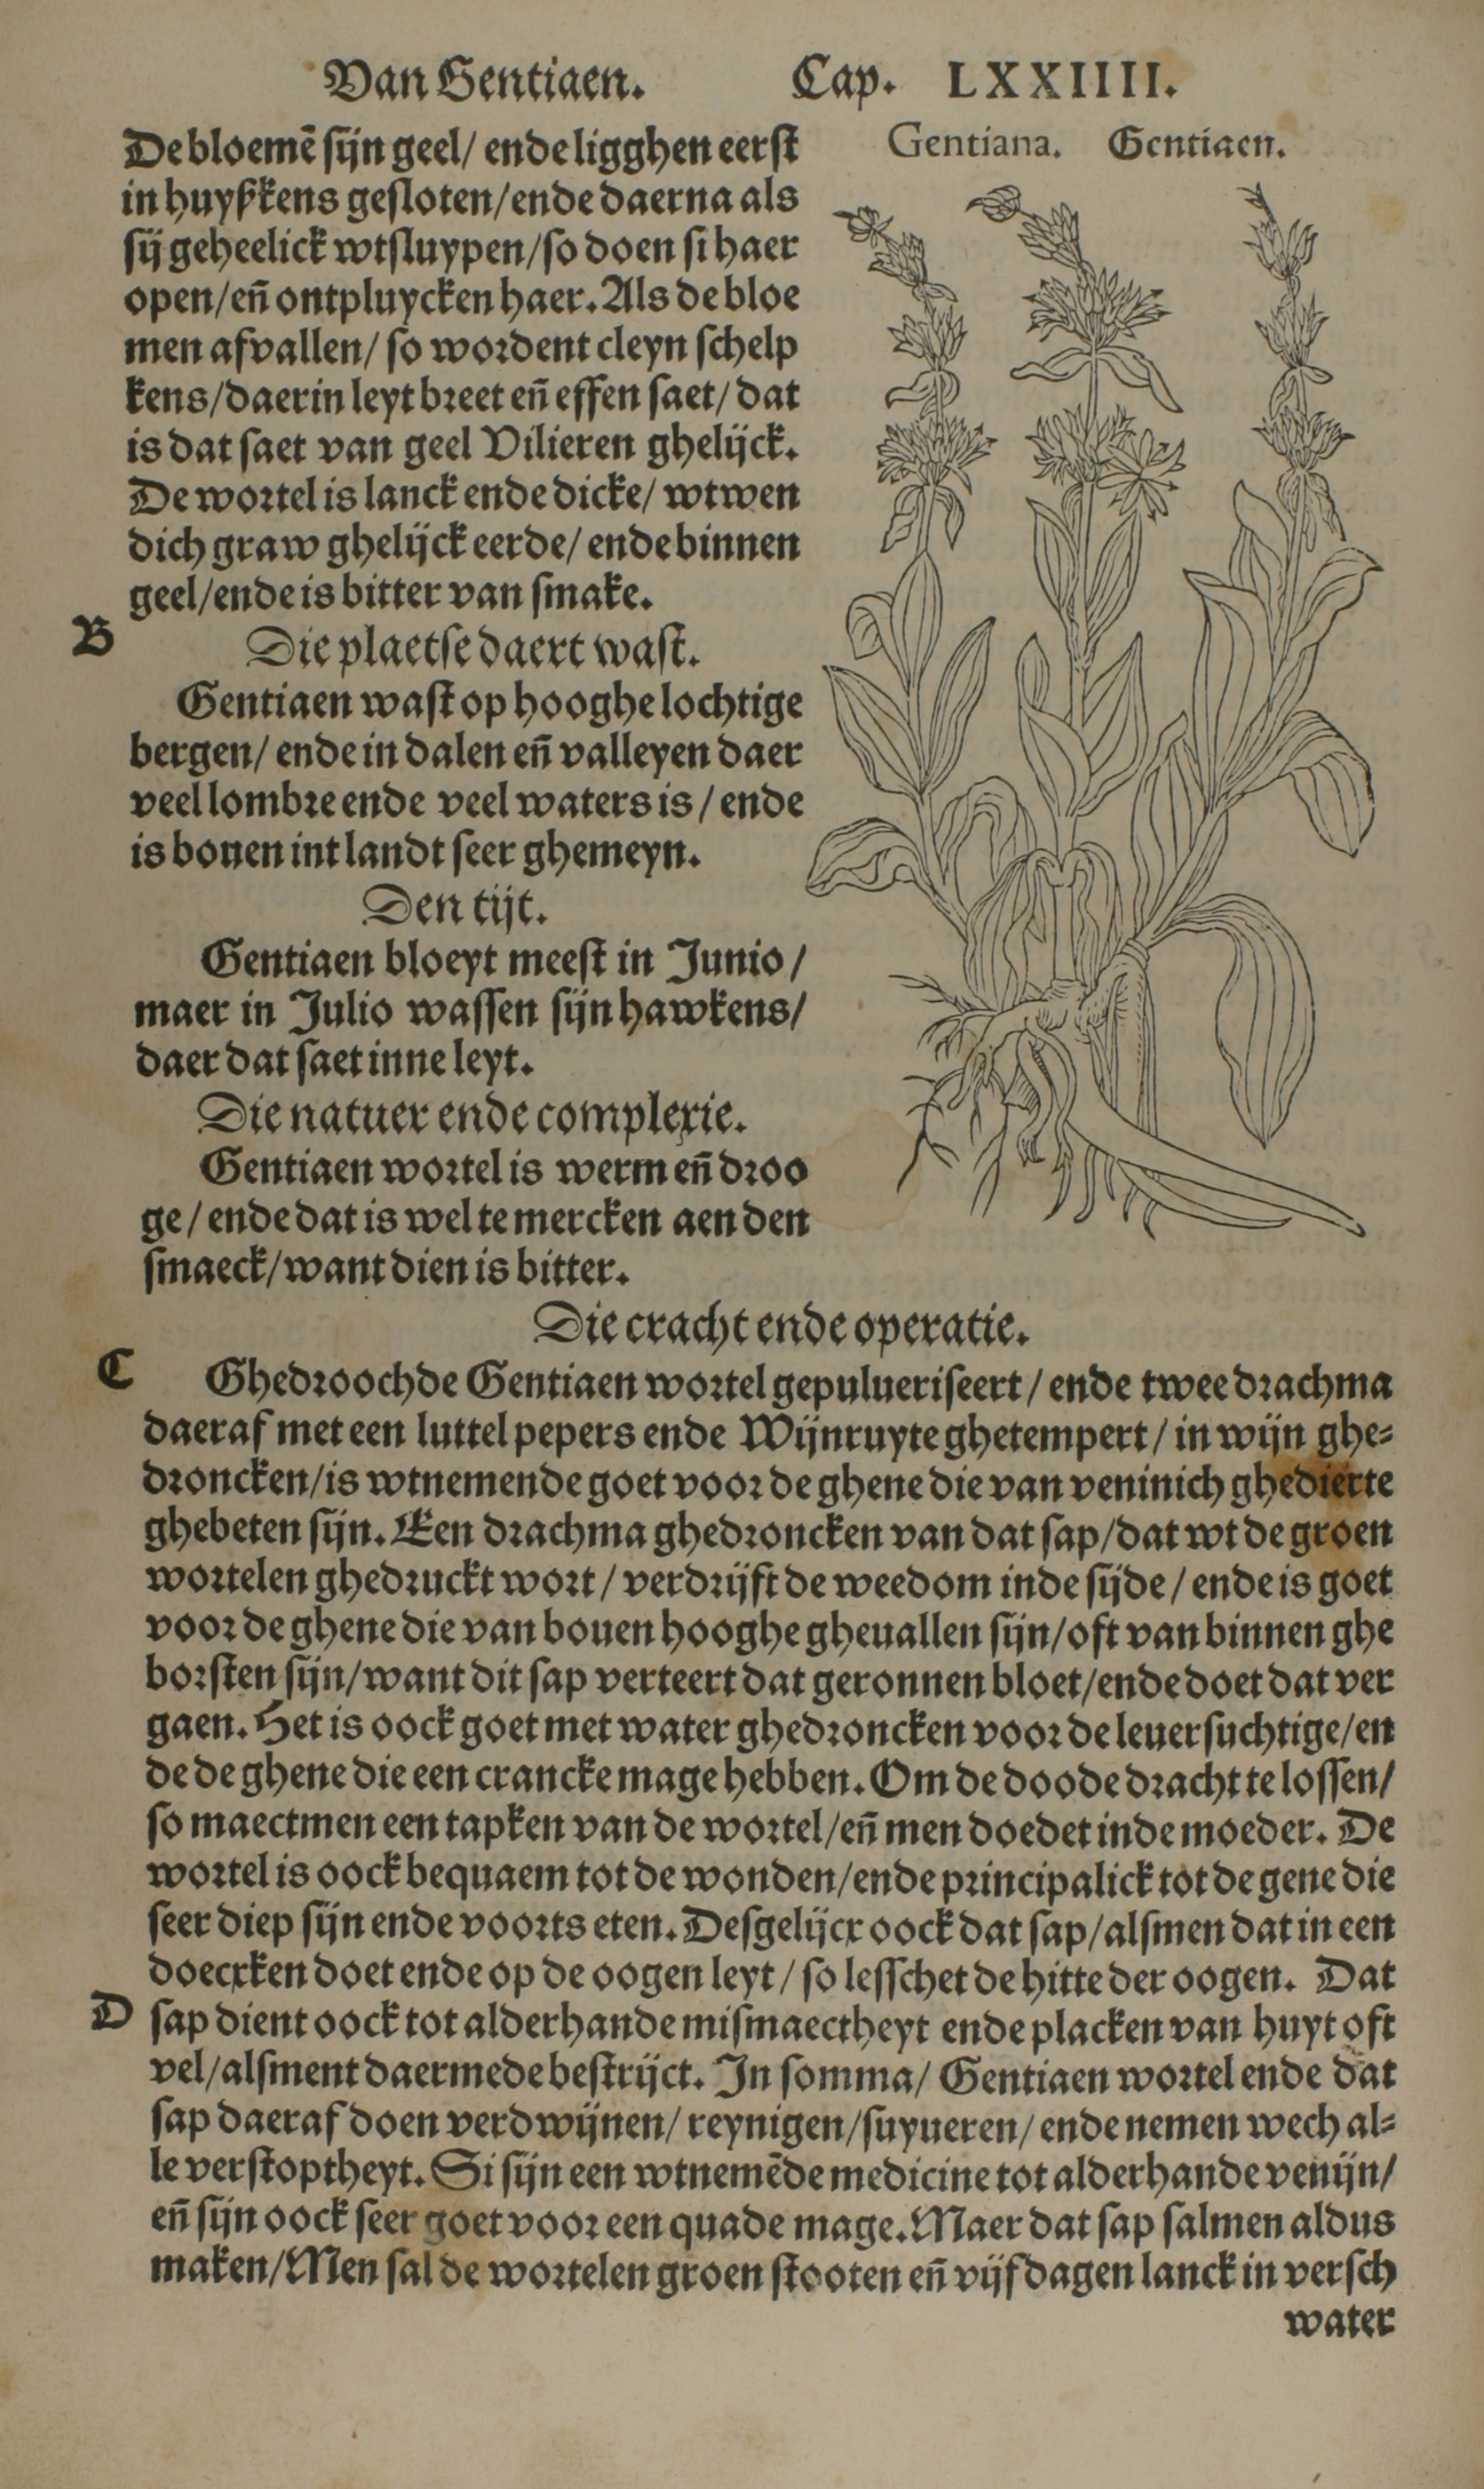 Van Gentiaen. Cap. LXXIIII.
Gentiana. Gentiaen.
De bloemē sijn geel/ ende ligghen eerst
in huyßkens gesloten/ende daerna als
sij geheelick wtsluypen/so doen si haer
open/en̄ ontpluycken haer. Als de bloe
men afvallen/ so wordent cleyn schelp
kens/daerin leyt breet en̄ effen saet/ dat
is dat saet van geel Vilieren ghelijck.
De wortel is lanck ende dicke/ wtwen
dich graw ghelijck eerde/ ende binnen
geel/ende is bitter van smake.
B
Die plaetse daert wast.
Gentiaen wast op hooghe lochtige
bergen/ ende in dalen en̄ valleyen daer
veel lombre ende veel waters is/ ende
is bouen int landt seer ghemeyn.
Den tijt.
Gentiaen bloeyt meest in Junio/
maer in Julio wassen sijn hawkens/
daer dat saet inne leyt.
Die natuer ende complexie.
Gentiaen wortel is werm en̄ droo
ge/ ende dat is wel te mercken aen den
smaeck/want dien is bitter.
Die cracht ende operatie.
C Ghedroochde Gentiaen wortel gepulueriseert/ ende twee drachma
daeraf met een luttel pepers ende Wijnruyte ghetempert/ in wijn ghe-
droncken/is wtnemende goet voor de ghene die van veninich ghedierte
ghebeten sijn. Een drachma ghedroncken van dat sap/dat wt de groen
wortelen ghedruckt wort/ verdrijft de weedom inde sijde/ ende is goet
voor de ghene die van bouen hooghe gheuallen sijn/oft van binnen ghe
borsten sijn/want dit sap verteert dat geronnen bloet/ende doet dat ver
gaen. Het is oock goet met water ghedroncken voor de leuersuchtige/en
de de ghene die een crancke mage hebben. Om de doode dracht te lossen/
so maectmen een tapken van de wortel/en̄ men doedet inde moeder. De
wortel is oock bequaem tot de wonden/ende principalick tot de gene die
seer diep sijn ende voorts eten. Desgelijcx oock dat sap/alsmen dat in een
doecxken doet ende op de oogen leyt/ so lesschet de hitte der oogen. Dat
D sap dient oock tot alderhande mismaectheyt ende placken van huyt oft
vel/alsment daermede bestrijct. In somma/ Gentiaen wortel ende dat
sap daeraf doen verdwijnen/ reynigen/suyueren/ ende nemen wech al-
le verstoptheyt. Si sijn een wtnemēde medicine tot alderhande venijn/
en̄ sijn oock seer goet voor een quade mage. Maer dat sap salmen aldus
maken/Men sal de wortelen groen stooten en̄ vijf dagen lanck in versch
water